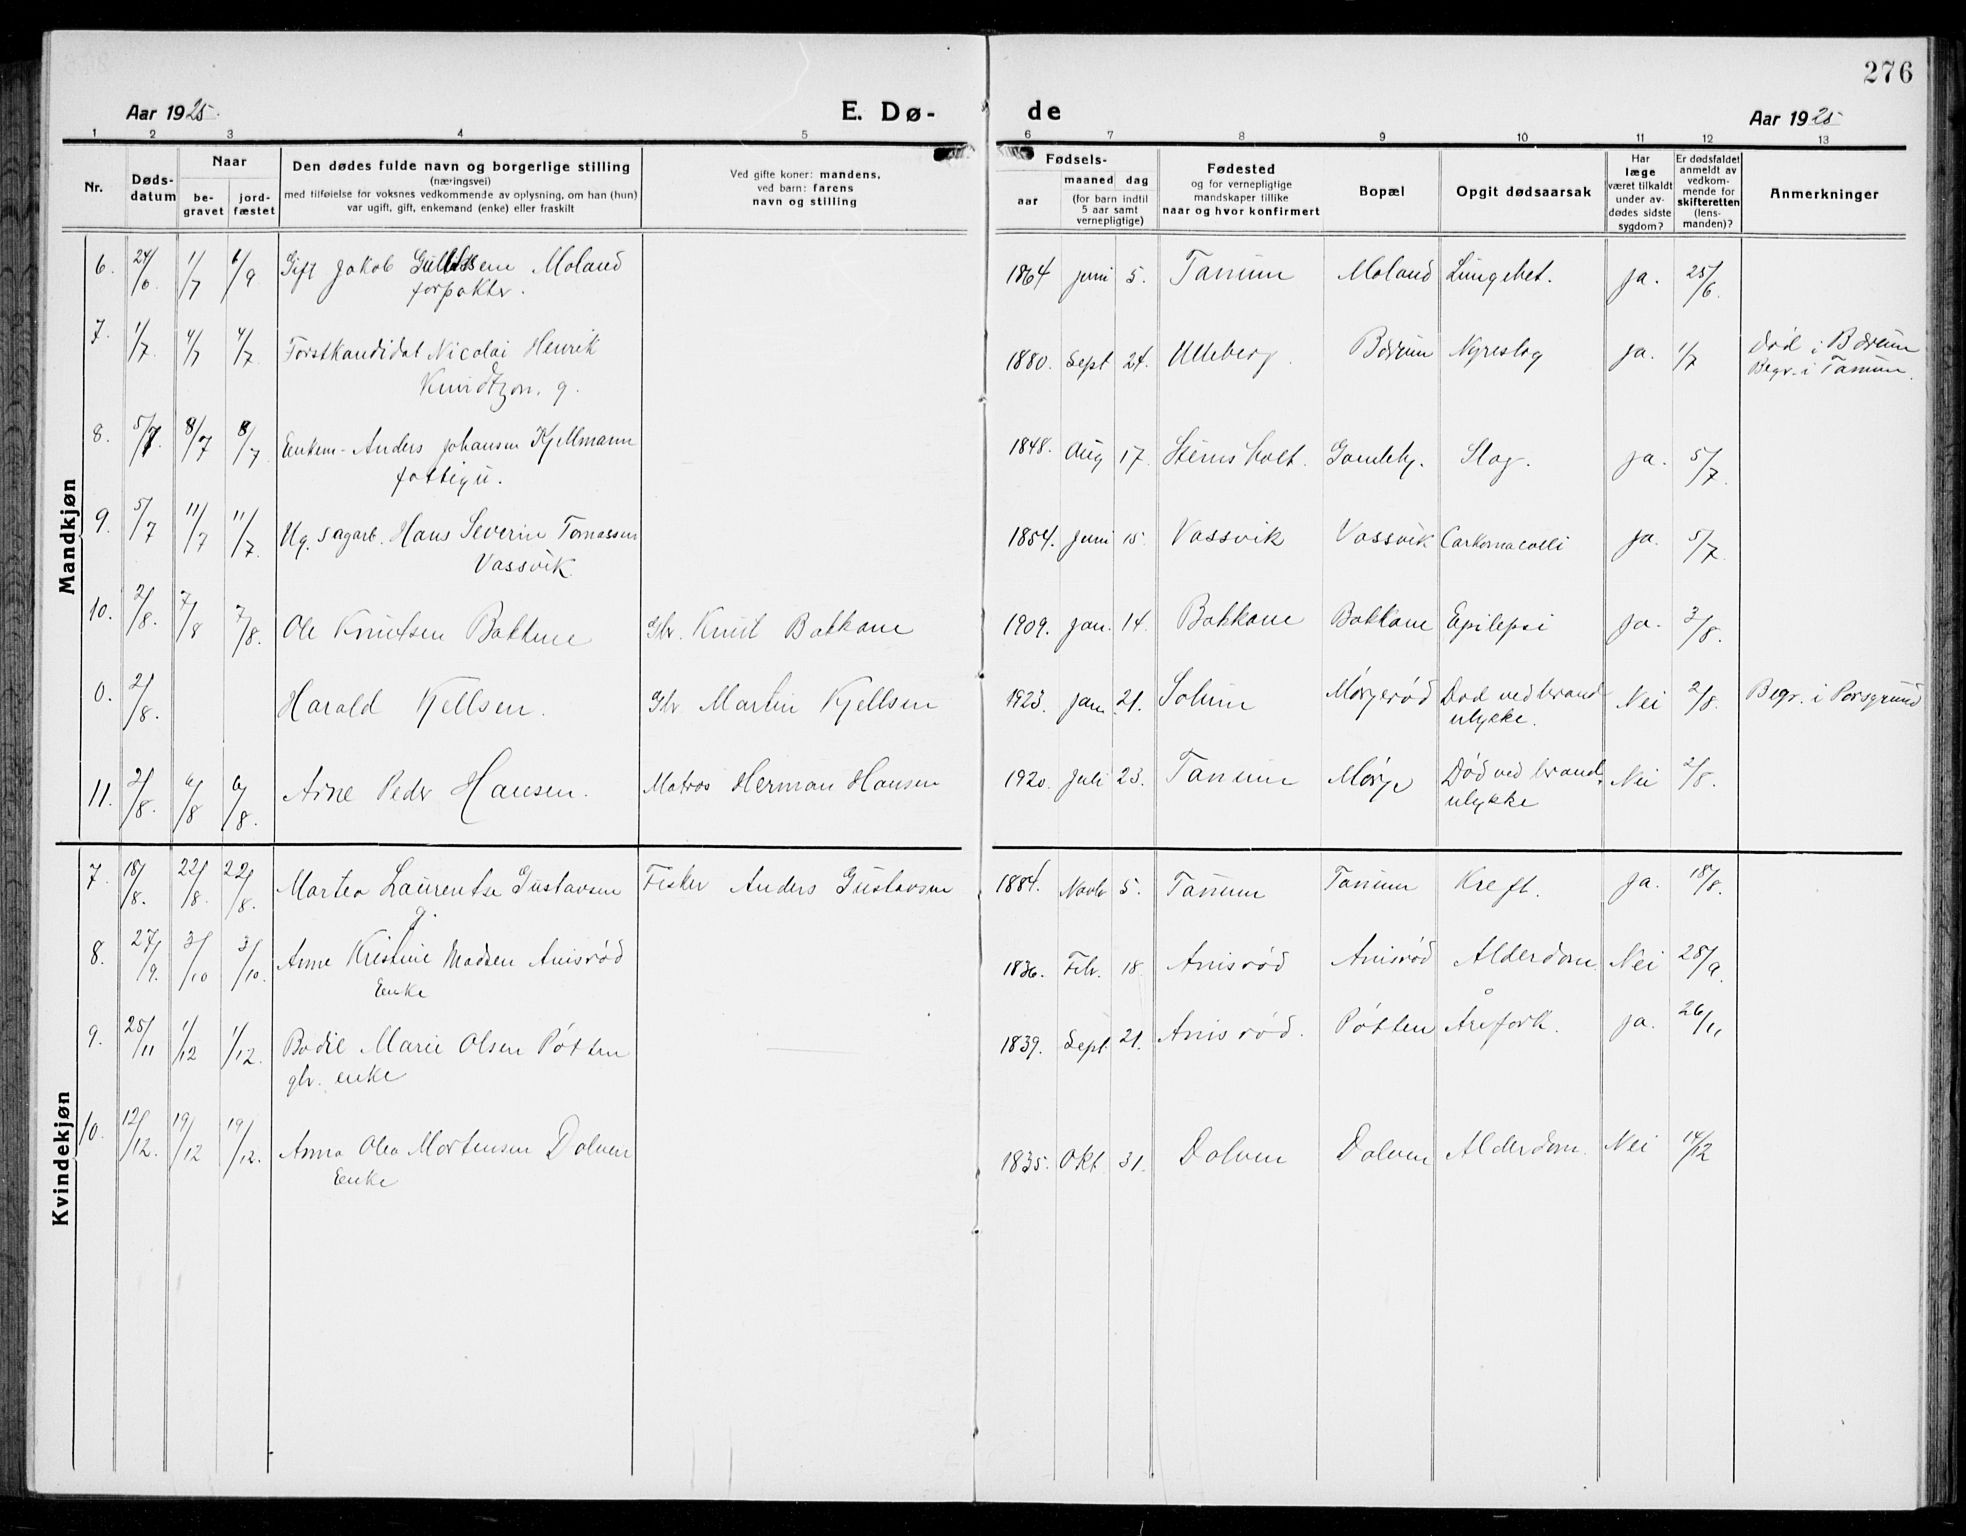 276
Aar 1925. E. Dø- de Aar 1925
1 2 3 4 5 6 7 8 9 10 11 12 13
Nr. Døds-datum Naar be-gravet jord-fæstet Den dødes fulde navn og borgerlige stilling (næringsvei) med tilføielse for voksnes vedkommende av oplysning, om han (hun) var ugift, gift, enkemand (enke) eller fraskilt Ved gifte koner: mandens, ved barn: farens navn og stilling Fødsels- aar maaned dag (for barn indtil 5 aar samt vernepligtige) Fødested og for vernepligtige mandskaper tillike naar og hvor konfirmert Bopæl Opgit dødsaarsak Har læge været tilkaldt under av-dødes sidste sygdom? Er dødsfaldet anmeldt av vedkom-mende for skifteretten (lens-manden)? Anmerkninger
Mandkjøn
6. 24/6 1/7 6/9 Gift Jakob Moland 1864 juni 5. Tanum Moland Lungebet. ja. 25/6.
forpakter.
7. 1/7 4/7 4/7. Forstkandidat Nicolai Henrik 1880. Sept 24. Ulleberg. Bærum Nyreslag ja. 1/7 Død i Bærum
Knudtzon. g. Begr. i Tanum.
8. 5/7. 8/7 8/7 Enkem- Anders Johansen Kjellmann 1848. Aug 17. Gamleh. Slag. ja. 5/7.
fattigu.
9. 5/7 11/7 11/7. Ug. sagarb. Hans Severin Tomassen 1854. Juni 15. Vassvik Vassvik ja. 5/7.
Vassvik
10. 2/8. 7/8 7/8. Ole Knutsen Bakkene Gbr. Knut Bakkane 1909. Jan. 14. Bakkane Bakkane Epilepsi ja. 3/8.
0. 2/8. Harald Kjellsen. Gbr Martin Kjellsen 1923. Jan. 21. Solum Mørjerød Død ved brand Nei 2/8. Begr. i Porsgrund
ulykke.
11. 2/8. 6/8 6/8. Arne Peder Hansen. Matros Herman Hansen 1920. Juli 23. Tanum Mørje Død ved brand- Nei 2/8.
ulykke
Kvindekjøn
7. 18/8. 22/8. 22/8. Martea Laurentse Gustavsen Fisker Anders Gustavsen 1884. Novbr 5. Tanum Tanum Kreft. ja. 18/8.
g.
8. 27/9. 3/10 3/10. Anne Kristine Madsen Anisrød 1836. Febr. 18. Anisrød Anisrød Alderdom Nei 28/9
Enke
9. 25/11 1/12 1/12. Bodil Marie Olsen Pøtten 1839. Sept. 21. Anisrød. Pøtten Årefork. ja. 26/11
gbr. enke
10. 12/12. 19/12 19/12. Anna Olea Mortensen Dolven 1835. Okt. 31. Dolven Dolven Alderdom. Nei 14/12
Enke